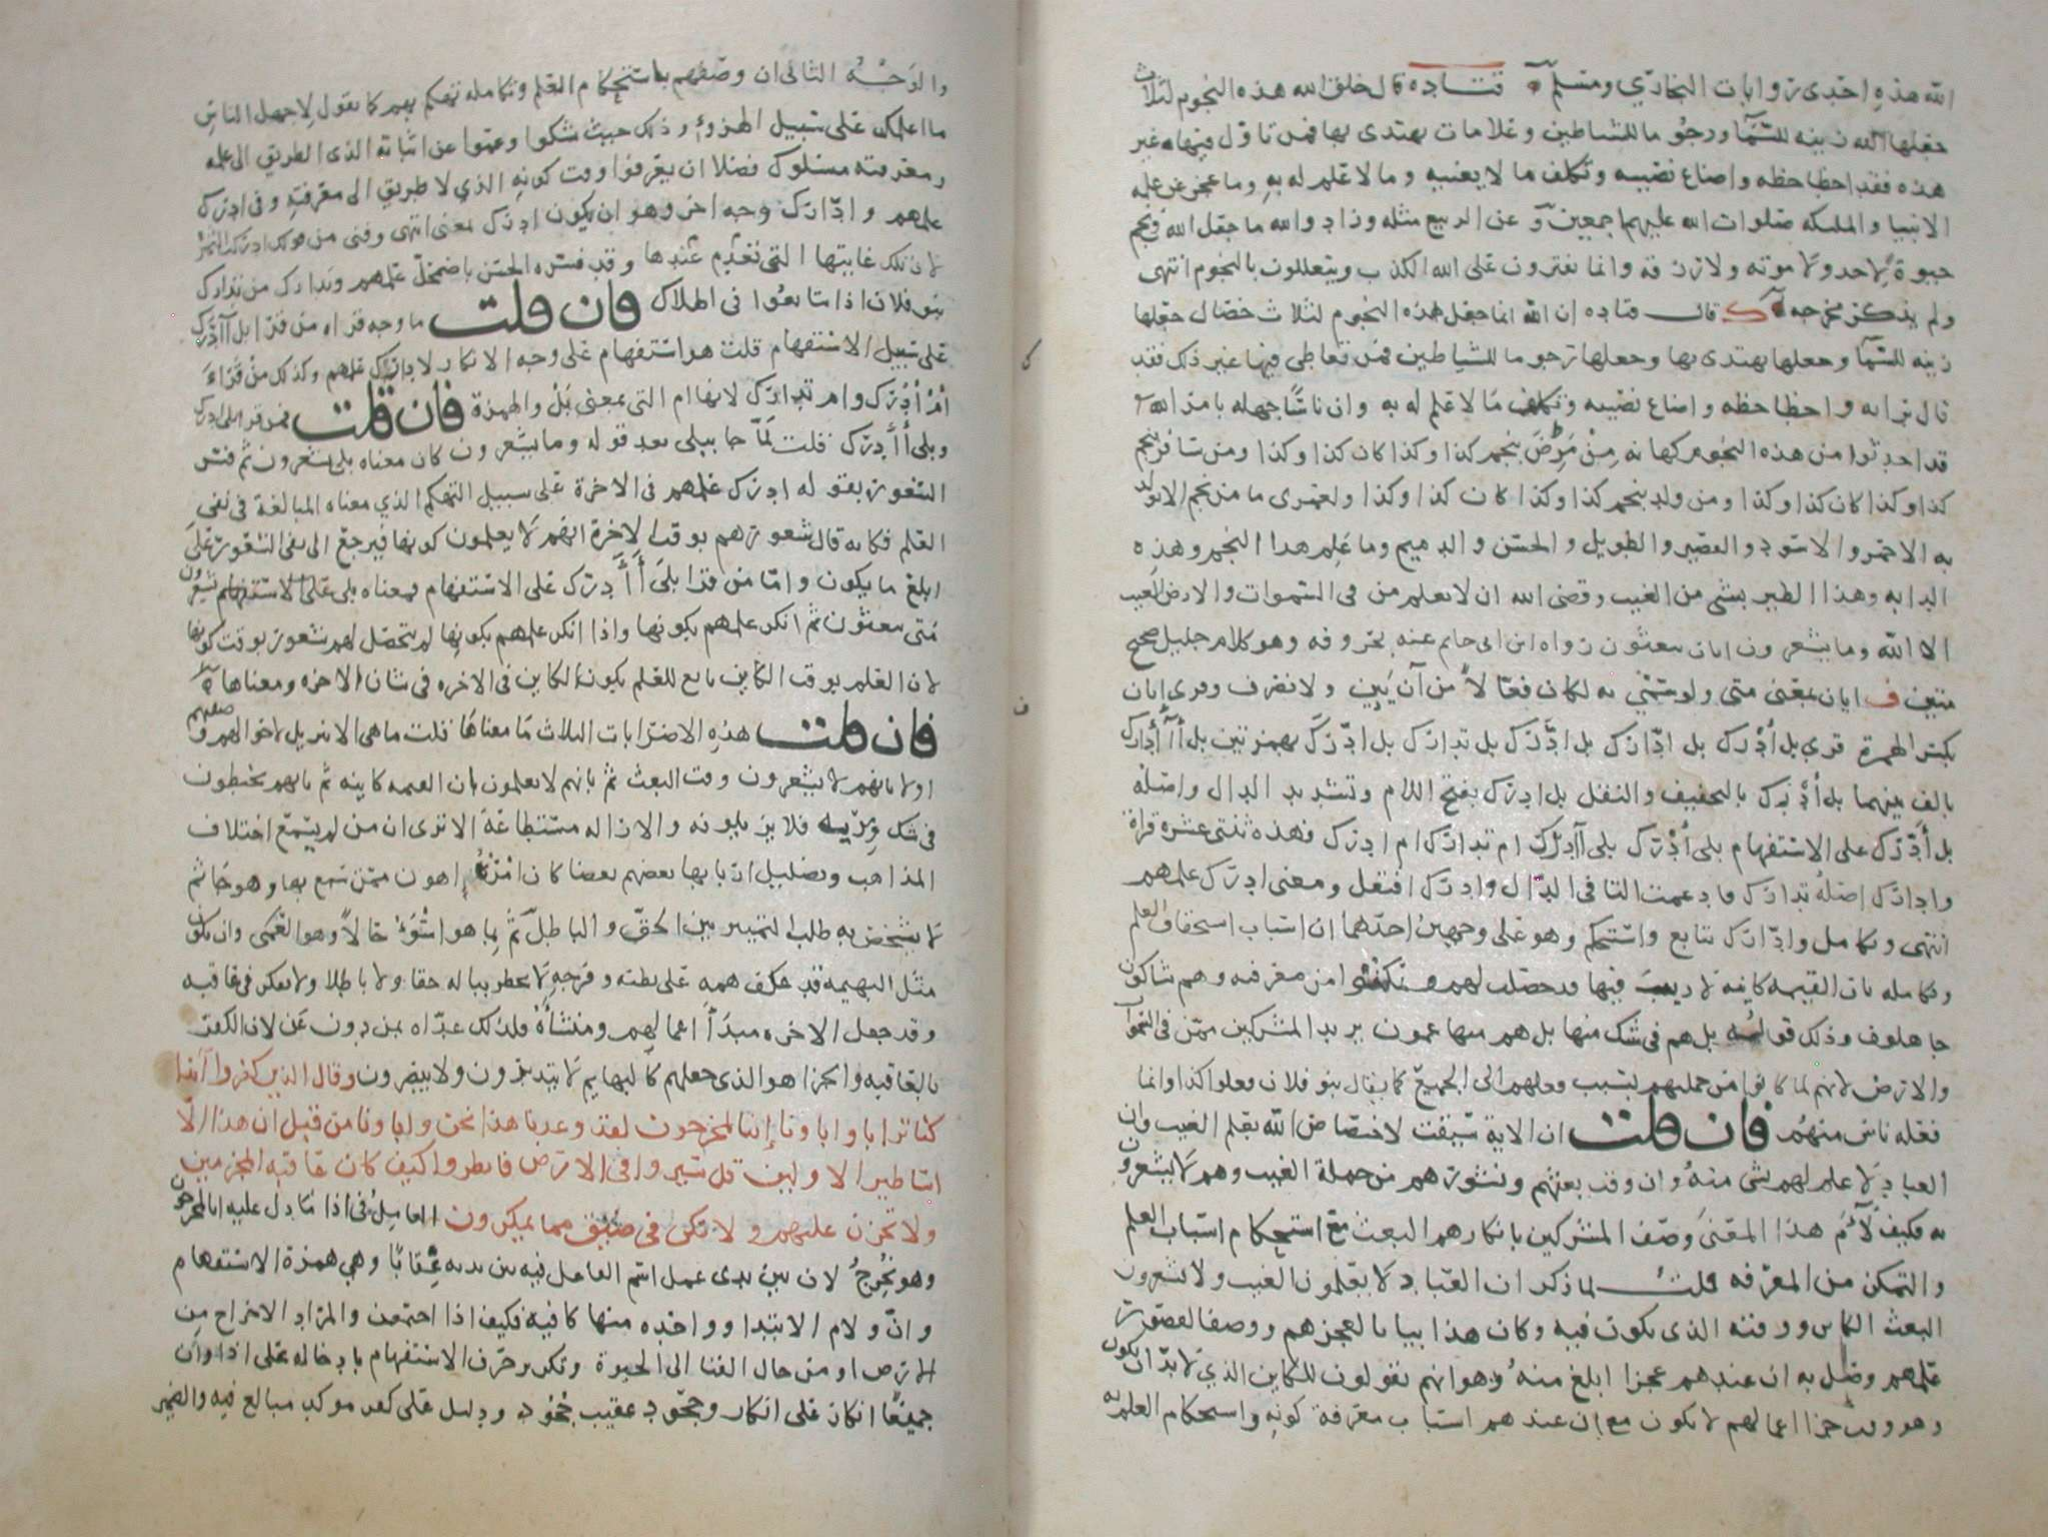 الله هذه احدى روايات البخاري ومسلم قتاده قال خلق الله هذه النجوم لثلاث
جعلها الله زينه للسما ورجوما للشياطين وعلامات يهتدى بها فمن تاول فيها غير
هذه فقد اخطا حظه واضاع نصيبه وتكلف ما لا يعنيه وما لا علم له به وما عجز عن علمه
الانبيا والملىكه صلوات الله عليهم اجمعين وعن الربيع مثله وزاد والله ما جعل الله في نجم
حيوة احد ولا موته ولا رزقه وانما يفترون على الله الكذب ويتعللون بالنجوم انتهى
ولم يذكر مخرجه ك قال قتاده ان الله انما جعل هذه النجوم لثلاث خصال جعلها
زينه للسما وجعلها يهتدى بها وجعلها رجوما للشياطين فمن تعاطى فيها غير ذلك فقد
قال برايه واخطا حظه واضاع نصيبه وتكلف ما لا علم له به وان ناسًا جهله بامر الله
قد احدثوا من هذه النجوم كهانه من بنجم كذا وكذا كان كذا وكذا ومن سافر بنجم
كذا وكذا كان كذا وكذا ومن ولد بنجم كذا وكذا كان كذا وكذا ولعمرى ما من نجم الا يولد
به الاحمر والاسود والقصير والطويل والحسن والدميم وما علم هذا النجم وهذه
الدابه وهذا الطير بشي من الغيب وقضى الله ان لا يعلم من في السموات والارض الغيب
الا الله وما يشعرون ايان يبعثون رواه ابن ابى حاتم عنه بحروفه وهو كلام جليل صحيح
متين ف ايان بمعنى متى ولو سمي به لكان فعّالًا من آن يئين ولا نصرف وقرى ايان
بكسر الهمزة قرى بل أدرك بل ادّارك بل ادّرك بل تدارك بل ادّرك بهمزتين بل أآدرك
بالف بينهما بل أدرك بالتخفيف والنقل بل ادرك بفتح اللام وتشديد الدال واصله
بل أدّرك على الاستفهام بلى أدرك بلى أأدرك ام تدارك ام ادرك فهذه ثنتى عشرة قراة
وادارك اصله تدارك فادغمت التا في الدال وادرك افتعل ومعنى ادرك علمهم
انتهى وتكامل وادارك تتابع واستحكم وهو على وجهين احدهما ان اسباب استحقاق العلم
وتكامله بان القيمه كاينه لا ريب فيها قد حصلت لهم ومكنوا من معرفته وهم شاكون
جاهلون وذلك قوله بل هم في شك منها بل هم منها عمون يريد المشركين ممن في السموات
والارض لانهم لما كانوا من جملتهم نسب فعلهم الى الجميع كما يقال بنو فلان فعلوا كذا وانما
فعله ناس منهم فان قلت ان الاية سيقت لاختصاص الله بعلم الغيب وان
العباد لا علم لهم بشي منه وان وقت بعثهم ونشورهم من جملة الغيب وهم لا يشعرون
به فكيف لآءم هذا المعنى وصف المشركين بانكارهم البعث مع استحكام اسباب العلم
والتمكن من المعرفه قلت لما ذكر ان العباد لا يعلمون الغيب ولا يشعرون
البعث الكاين ووقته الذى يكون فيه وكان هذا بيانا لعجزهم ووصفا لقصور
علمهم وصل به ان عندهم عجزا ابلغ منه وهو انهم يقولون للكاين الذي لا بدّ ان يكون
وهو وقت جزا اعمالهم لا يكون مع ان عندهم اسباب معرفة كونه واستحكام العلم به
والوجه الثاني ان وصفهم باستحكام العلم وتكامله تهكم بهم كما تقول لاجهل الناس
ما اعلمك على سبيل الهزؤ وذلك حيث شكوا وعموا عن اثباته الذى الطريق الى علمه
ومعرفته مسلوك فضلا ان يعرفوا وقت كونه الذي لا طريق الى معرفته وفى ادرك
علمهم وادّارك وجه اخر وهو ان يكون ادرك بمعنى انتهى وفنى من قولك ادركت الثمره
لان تلك غايتها التي تعدم عندها وقد فسره الحسن باضمحلّ علمهم وتدارك من تدارك
بنو فلان اذا تتابعوا في الهلاك فان قلت ما وجه قراه من قرا بل أأدرك
على سبيل الاستفهام قلت هو استفهام على وجه الانكار لادراك علمهم وكذلك من قراء
أم أدرك وام تدارك لانها ام التى بمعنى بل والهمزة فان قلت فمن قرا بلى ادرك
وبلى أأدرك قلت لمّا جا ببلى بعد قوله وما يشعرون كان معناه بلى يشعرون ثم فسر
الشعور بقوله ادرك علمهم في الاخرة على سبيل التهكم الذي معناه المبالغة في نفي
العلم فكانه قال شعورهم بوقت الاخرة انهم لا يعلمون كونها فيرجع الى نفى الشعور على
ابلغ ما يكون وامّا من قرا بلى أأدرك على الاستفهام فمعناه بلى يشعرون
متى يبعثون ثم انكر علمهم بكونها واذا انكر علمهم بكونها لم يتحصل لهم شعور بوقت كونها
لان العلم بوقت الكاين تابع للعلم بكون الكاين في الاخره في شان الاخره ومعناها
فان قلت هذه الاضرابات الثلاث مَا معناها قلت ما هي الا تنزيل لاحوالهم وصفهم
اولا بانهم لا يشعرون وقت البعث ثم بانهم لا يعلمون بان القيمه كاينه ثم بانهم يخبطون
في شك ومريه فلا يزيلونه والازاله مستطاعَة الا ترى ان من لم يسمع اختلاف
المذاهب وتضليل اربابها بعضهم بعضا كان امره اهون ممن سمع بها وهو جاثم
لا يشخص به طلب التمييز بين الحق والباطل ثم بما هو اسوء حالًا وهو العمى وان يكون
مثل البهيمه قد عكف همه على بطنه وفرجه لا يخطر بباله حقا ولا باطلا ولا يفكر في عاقبه
وقد جعل الاخره مبدأ اعمالهم ومنشاه فلذلك عدّاه بمن دون عن لان الكفر
بالعاقبه والجزا هو الذى جعلهم كالبهايم لا يتدبرون ولا يبصرون وقال الذين كفروا أئذا
كنا ترابا واباونا إئنا لمخرجون لقد وعدنا هذا نحن واباونا من قبل ان هذا الّا
اساطير الاولين قل سيروا فى الارض فانظروا كيف كان عاقبه المجرمين
ولا تحزن عليهم ولا تكن في ضيق مما يمكرون العامِلُ فى اذا مَا دل عليه انا لمخرجون
وهو نُخرجُ لان بين يدى عمل اسم الفاعل فيه عقابًا وهي همزة الاستفهام
وانّ ولام الابتدا وواحده منها كافيه فكيف اذا اجتمعن والمراد الاخراج من
الارض او من حال الفنا الى الحيوة وتكرير حرف الاستفهام بادخاله على اذا وان
جميعًا انكار على انكار وجحود عقيب جحود ودليل على كفر موكد مبالغ فيه والضمير